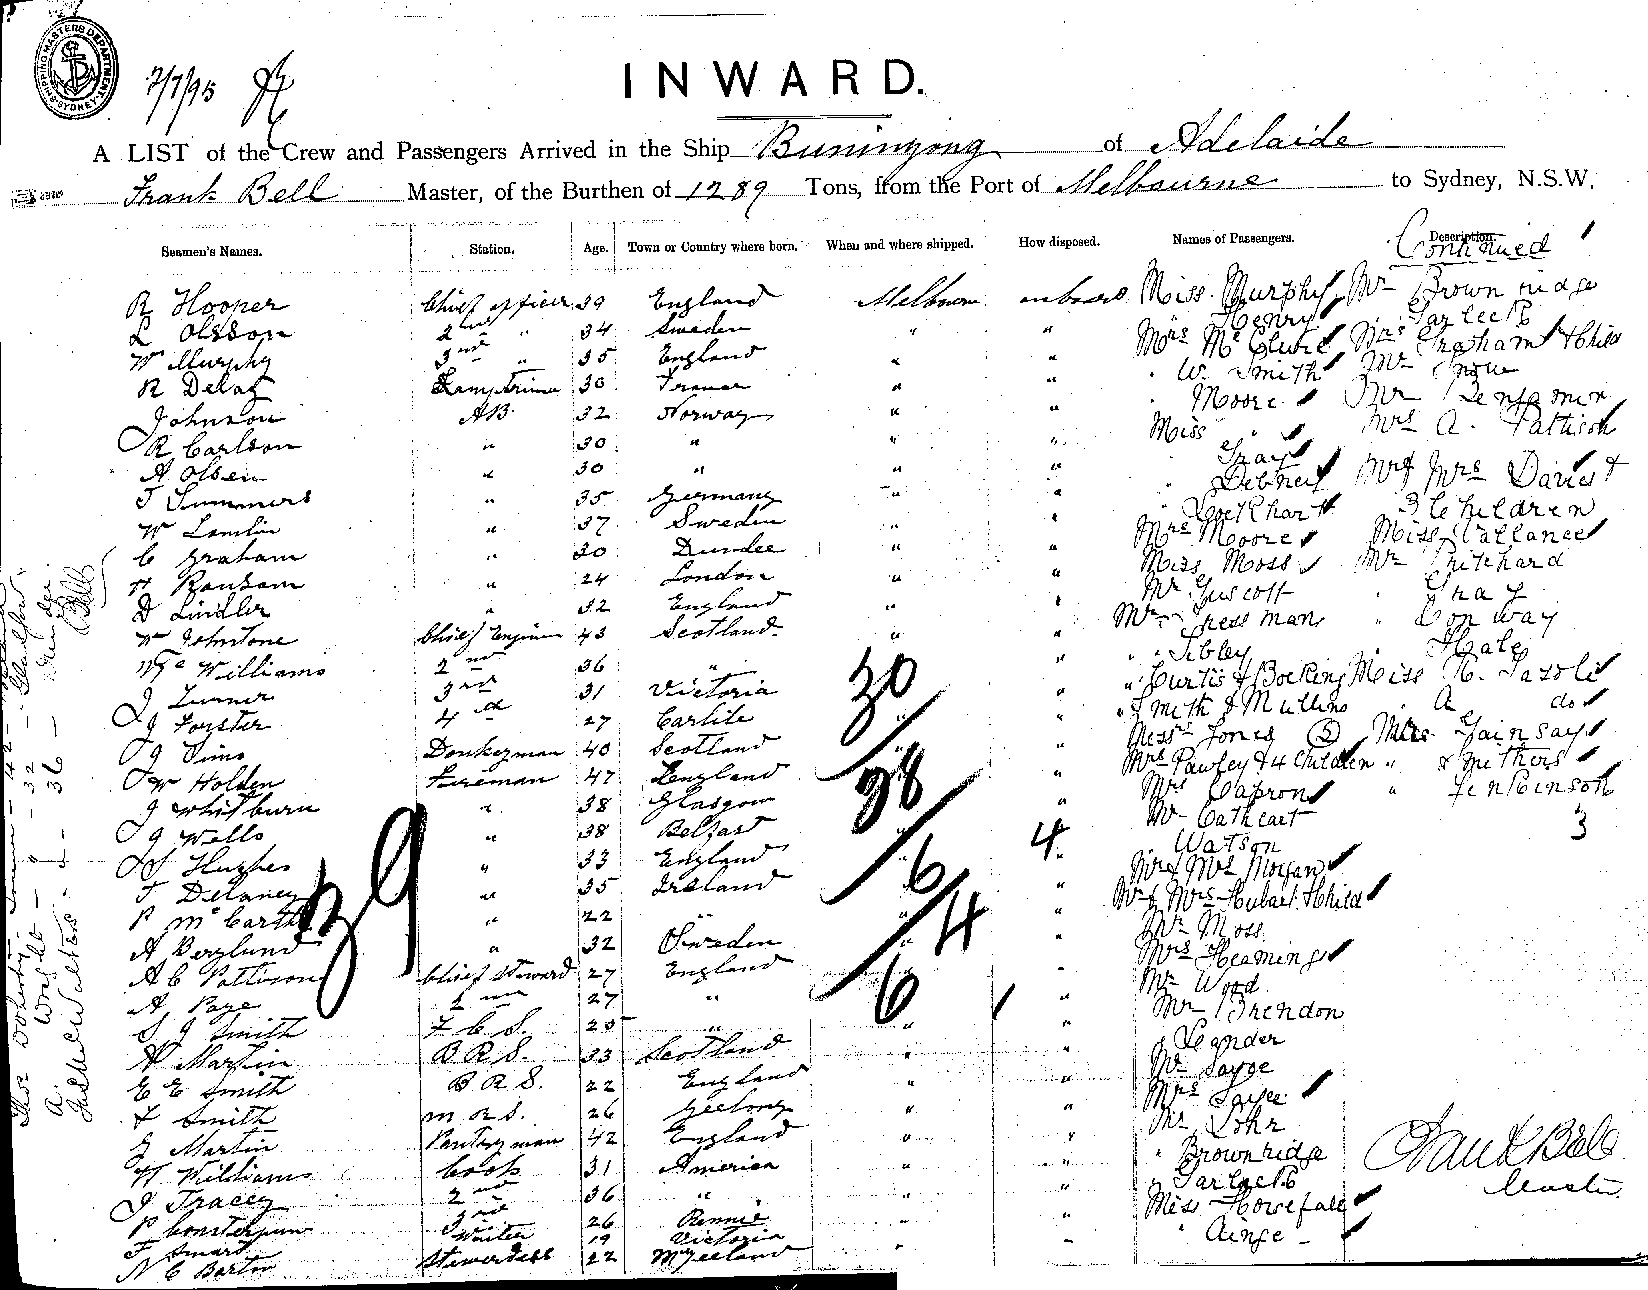 SHIPPING MASTERS DEPARTMENT SYDNEY
2/7/95
INWARD.
A LIST of the Crew and Passengers Arrived in the Ship Buninyong of Adelaide
Frank Bell Master, of the Burthen of 1289 Tons, from the Port of Melbourne to Sydney, N.S.W.
Seamen's Names. Station. Age. Town or Country where born. When and where shipped. How disposed. Names of Passengers. Description.
Continued
R Hooper Chief officer 39 England Melbourne on board Miss Murphy Mr Brownridge
L Olsson 2nd " 34 Sweden " " Henry Tarleck
W Murphy 3rd " 35 England " " Mrs McClure Mrs Graham & child
R Delaz Lamptrimmer 30 France " " " W. Smith Mr
Johnson AB. 32 Norway " " " Moore Mr Benjamin
R Carlson " 30 " " " Miss " Mrs A. Pattison
A Olsen " 30 " " " Gray
T Summers " 35 Germany " " " Mr & Mrs Davies &
W " 37 Sweden " " Lockhart 3 children
C Graham " 30 Dundee " " Mrs Moore Miss Vallance
H Ransom " 24 London " " Miss Moss Mr Pritchard
D Lindler " 32 England " " Mr Guscott " Gray
W Johnstone Chief Engineer 43 Scotland " " Mr Pressman " Conway
Wm Williams 2nd 36 " " " Sibley Hale
J Turner 3rd 31 Victoria 30 " " Curtis & Bocking Miss K.
J Forster 4th 27 Carlile " " " Smith & Mullins " A do
J Sims Donkeyman 40 Scotland " Messrs Jones (2) Mrs Gainsay
W Holden Fireman 47 England " Mrs Pawley & 4 Children " Smithers
J Whitburn " 38 Glasgow 38 " Mrs Capron " Jenkinson
J Wells " 38 Belfast " 4 Mr Cathcart 3
S Hughes " 33 England " " Watson
T Delaney " 35 Ireland 6 " Mr & Mrs Morgan
P McCarthy " 22 " " " Mr & Mrs Hubart & child
A Berglund " 32 Sweden 4 " Mr Moss
A C Pattison Chief Steward 27 England " " Mrs Heaming
A Page 2nd 27 " 6 " Mr Wood
S J Smith F C S. 25 " " " Mr Brendon
W Martin B R S. 33 Scotland " " " Leander
E E Smith B R S. 22 England " " Mr Sayge
F Smith M R S. 26 Geelong " " Mrs
J Martin Pantryman 42 England " " Mr Lohr
H Williams Cook 31 America " " " Brownridge
J Tracey 2nd 36 " " " " Tarleck
P 3rd 26 Rennie " " Miss Horsefall
F Smart Waiter 19 Victoria " " " Ainge
N C Bartin Stewardess 22 " "
39
Frank Bell
Master
A. Wright - " - 32 -
36
Bell